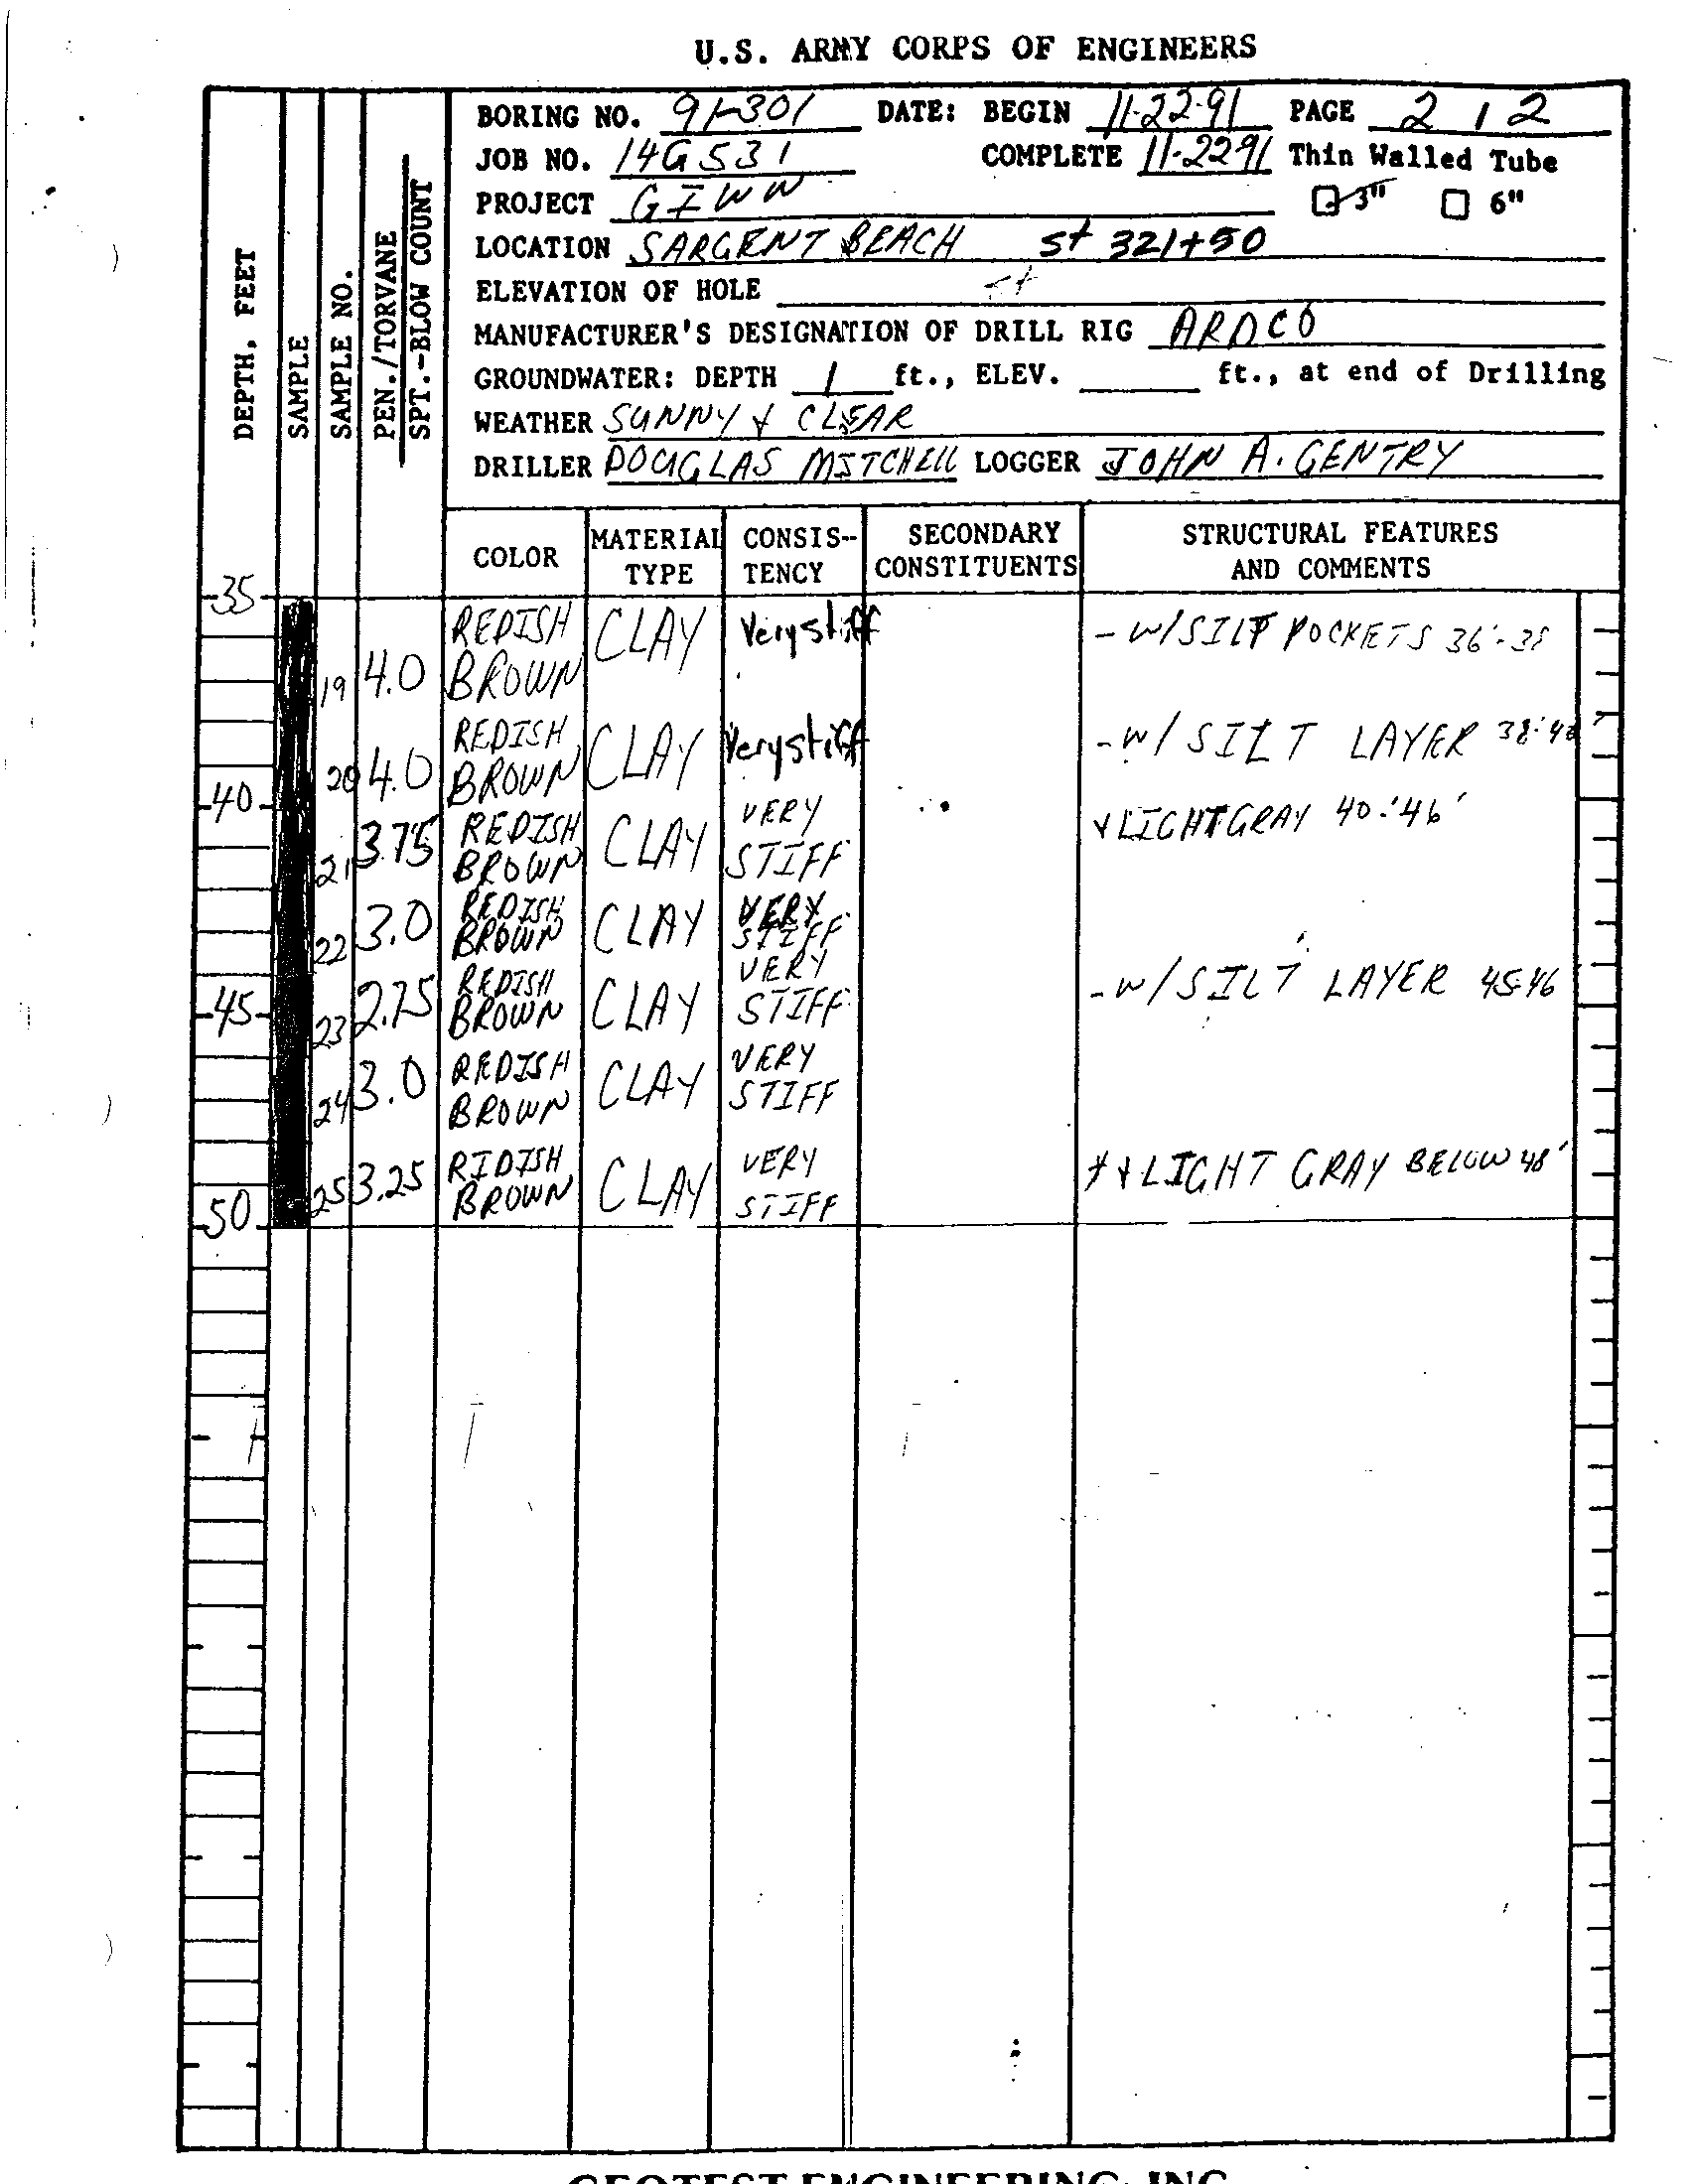 U.S. ARMY CORPS OF ENGINEERS
BORING NO. 91-301 DATE: BEGIN 11-22-91 PAGE 2 / 2
JOB NO. 14G531 COMPLETE 11-22 91 Thin Walled Tube
PROJECT GIWW 3" 6"
LOCATION SARGENT BEACH St 321+50
ELEVATION OF HOLE st
MANUFACTURER'S DESIGNATION OF DRILL RIG ARDCO
GROUNDWATER: DEPTH 1 ft., ELEV. ft., at end of Drilling
WEATHER SUNNY & CLEAR
DRILLER DOUGLAS MITCHELL LOGGER JOHN A. GENTRY
DEPTH, FEET
SAMPLE
SAMPLE NO.
PEN./TORVANE
SPT.-BLOW COUNT
COLOR MATERIAL TYPE CONSIS-TENCY SECONDARY CONSTITUENTS STRUCTURAL FEATURES AND COMMENTS
35
19 4.0 REDISH BROWN CLAY Very stiff - W/SILT POCKETS 36'-38
20 4.0 REDISH BROWN CLAY Very stiff - W/ SILT LAYER 38'-40'
40
21 3.75 REDISH BROWN CLAY VERY STIFF & LIGHT GRAY 40-'46'
22 3.0 REDISH BROWN CLAY VERY STIFF
45
23 2.75 REDISH BROWN CLAY VERY STIFF - W/SILT LAYER 45-46
24 3.0 REDISH BROWN CLAY VERY STIFF
25 3.25 RIDISH BROWN CLAY VERY STIFF & LIGHT GRAY BELOW 48'
50
GEOTEST ENGINEERING, INC.